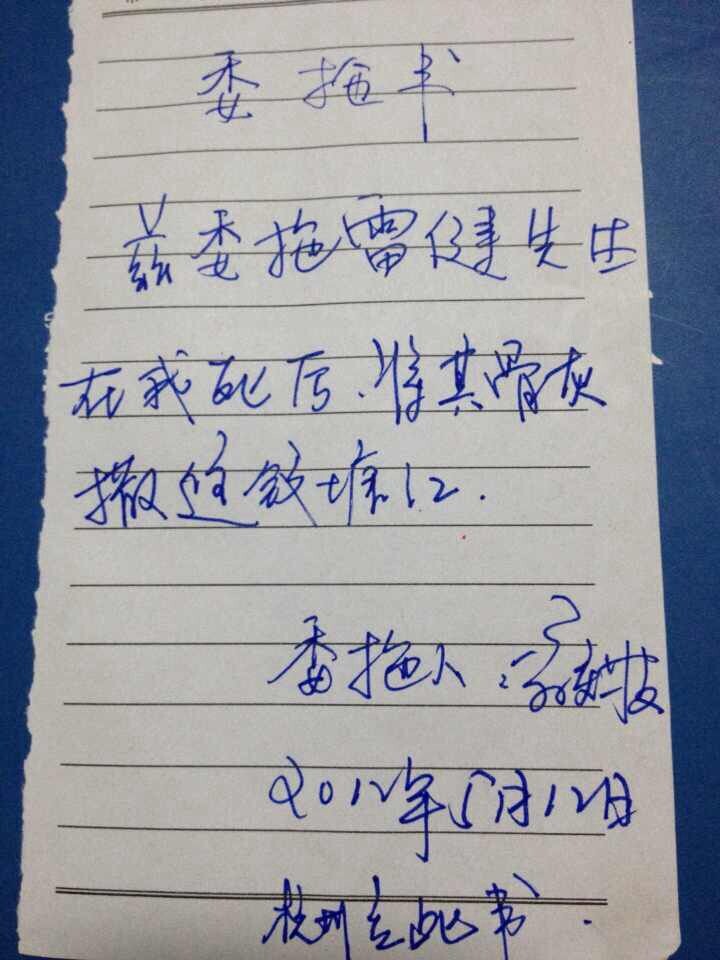 委拖书
兹委拖雷健先生
在我死后.将其骨灰
撒进钱塘江.
委拖人:
2012年5月12日
杭州立此书.